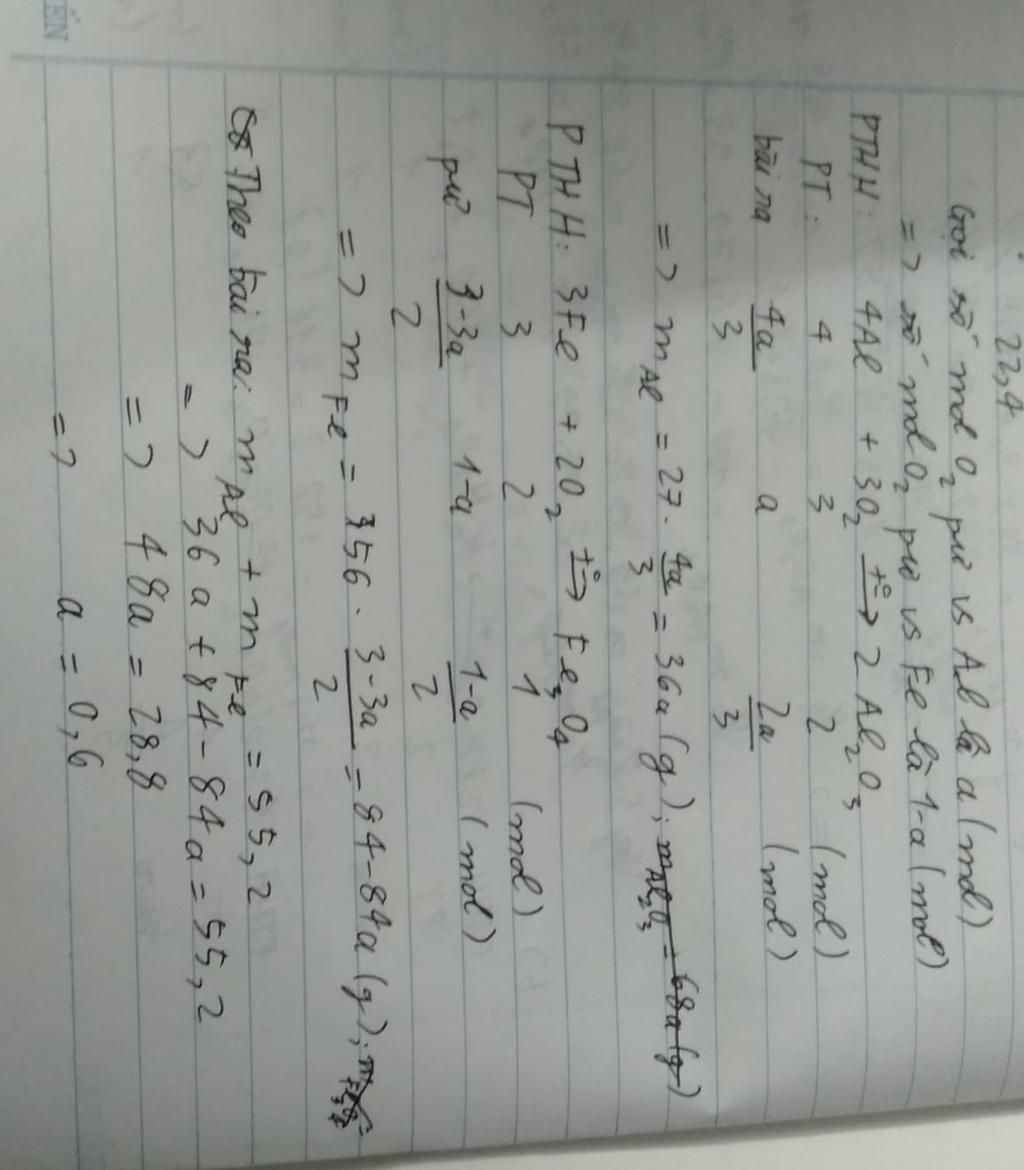 22,4
Gọi số mol O2 pư vs Al là a (mol)
=> số mol O2 pư vs Fe là 1-a (mol)
PTHH: 4Al + 3O2 t°→ 2Al2O3
PT: 4 3 2 (mol)
bài ra 4a/3 a 2a/3 (mol)
=> mAl = 27. 4a/3 = 36a (g); mAl2O3 = 68a (g)
PTHH: 3Fe + 2O2 t°→ Fe3O4
PT 3 2 1 (mol)
pư 3-3a/2 1-a 1-a/2 (mol)
=> mFe = 56. 3-3a/2 = 84-84a (g);
Theo bài ra: mAl + mFe = 55,2
=> 36a + 84 - 84a = 55,2
=> 48a = 28,8
=> a = 0,6
ẾN